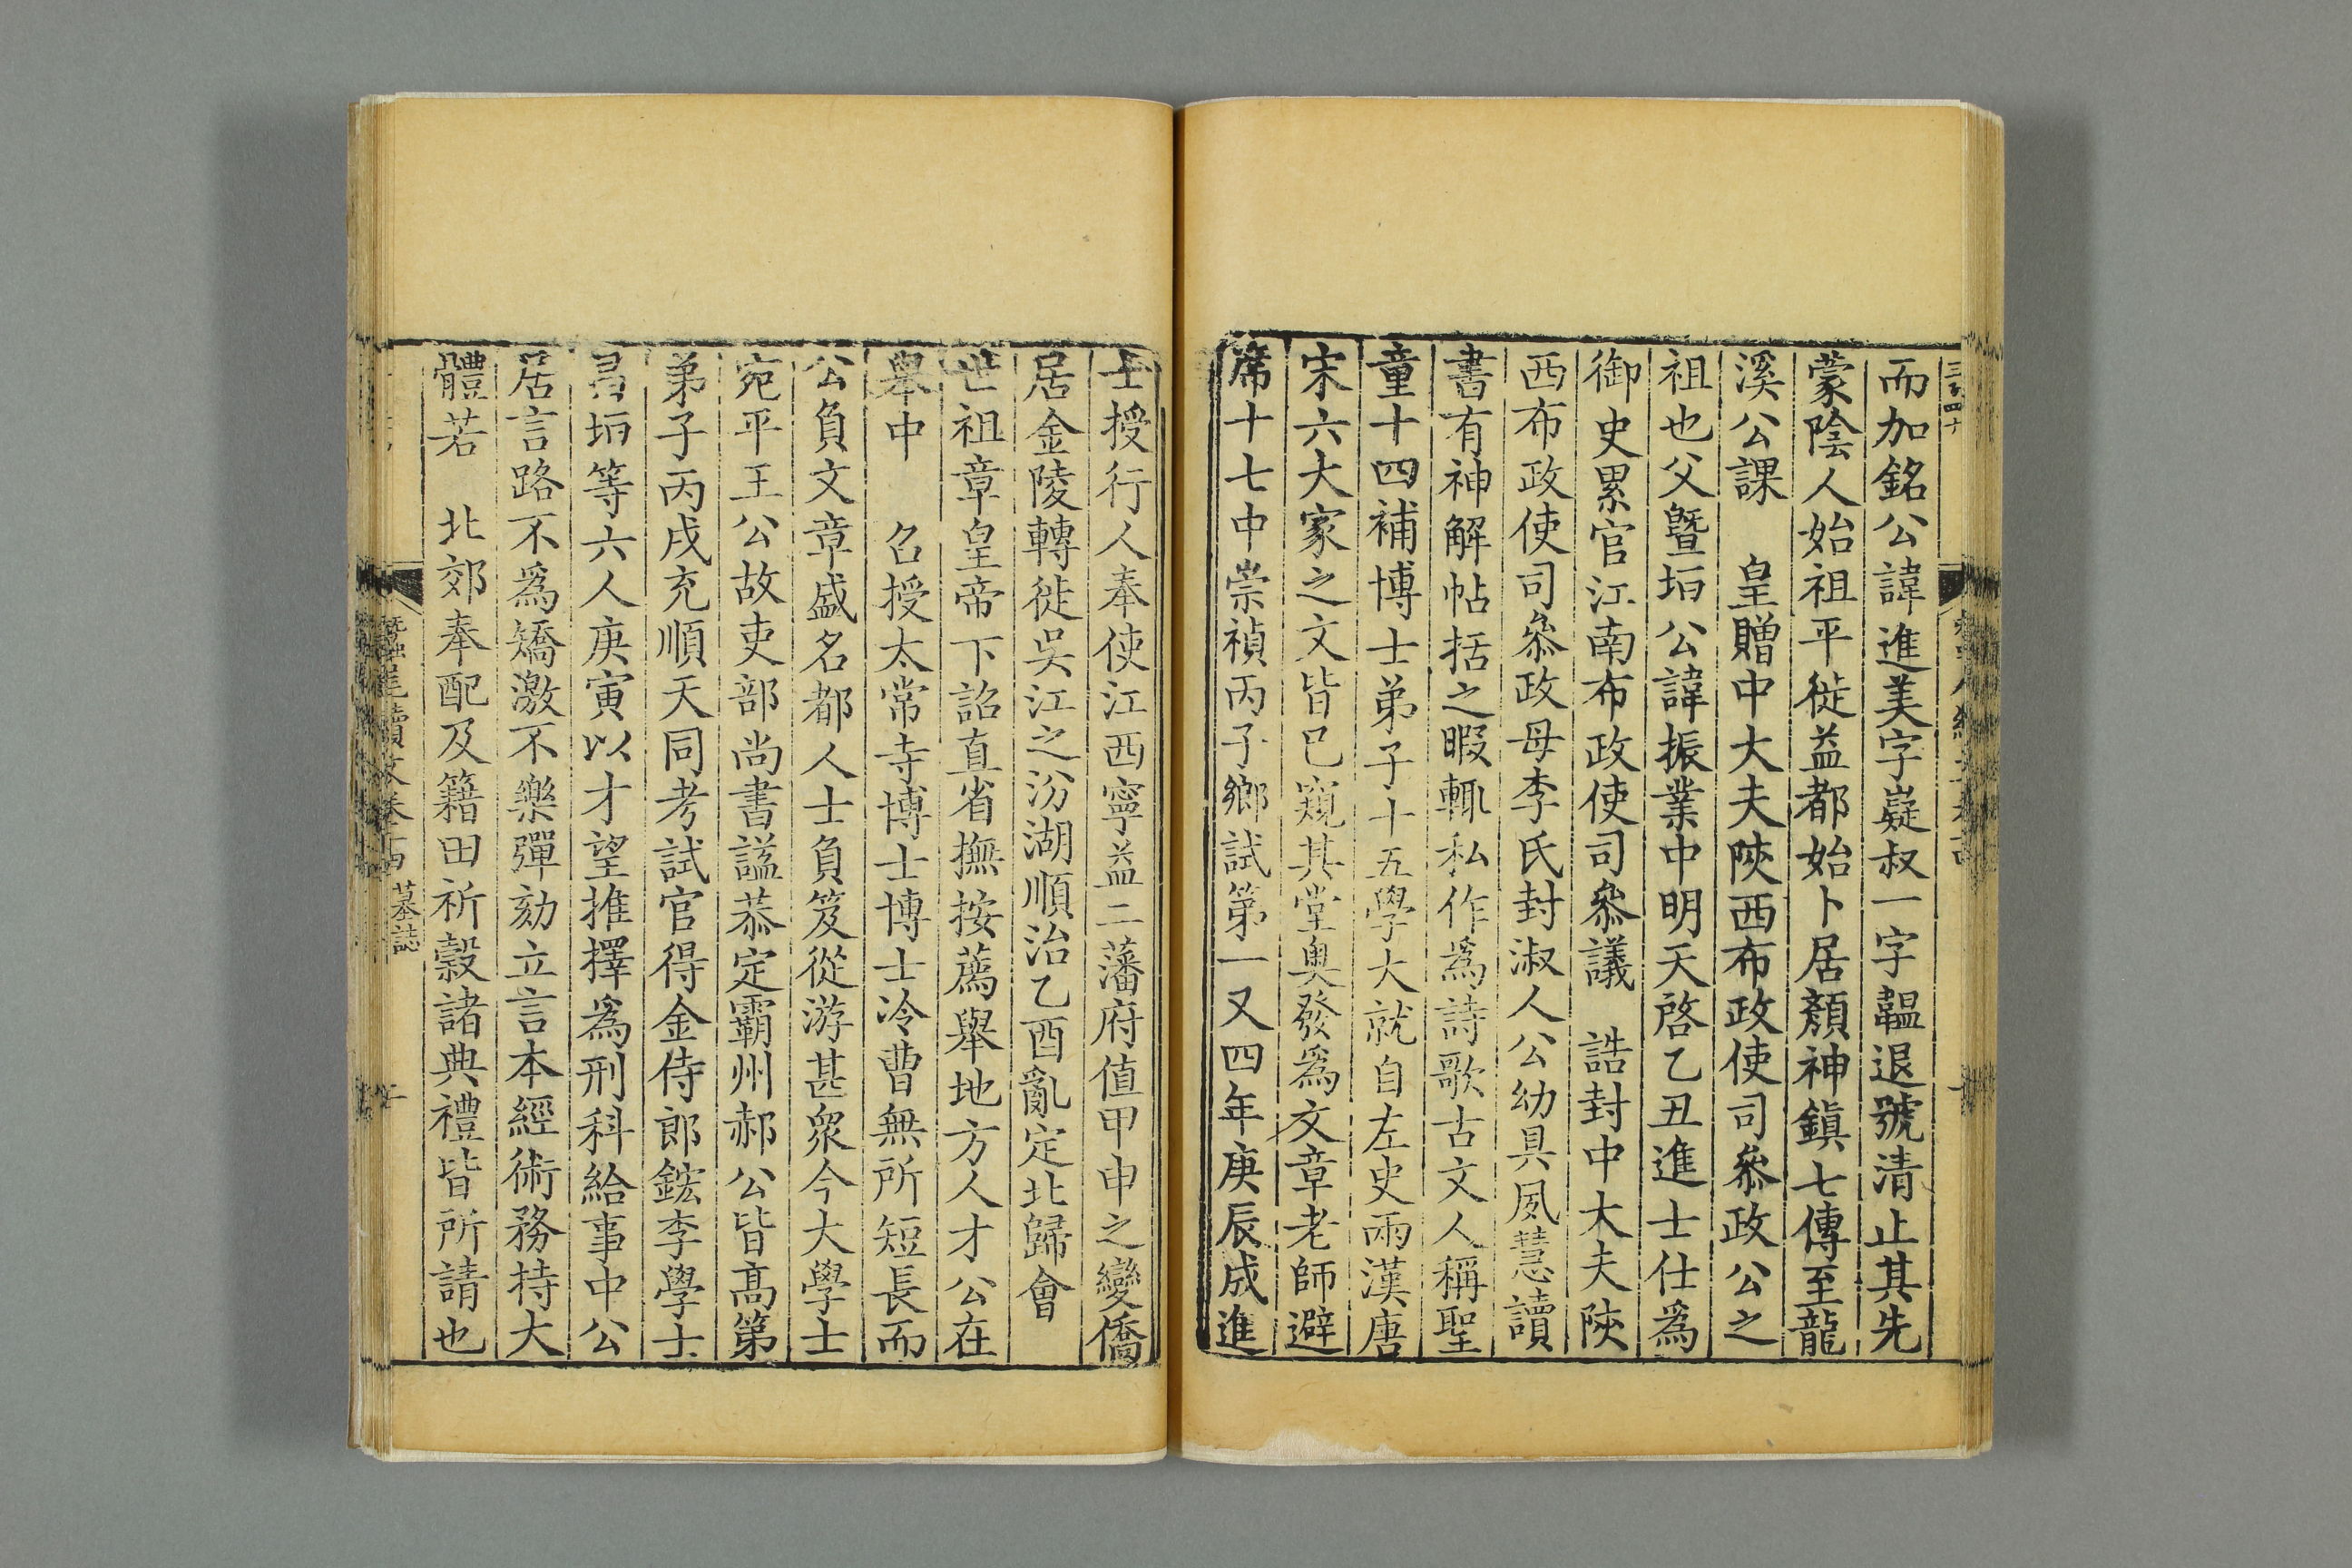 而加銘公諱進美字嶷叔一字韞退號清止其先
蒙陰人始祖平徙益都始卜居顏神鎮七傳至龍
溪公課　皇贈中大夫陝西布政使司叅政公之
祖也父曁垣公諱振業中明天啓乙丑進士仕爲
御史累官江南布政使司叅議　誥封中大夫陝
西布政使司叅政母李氏封淑人公幼具夙慧讀
書有神解帖括之暇輒私作爲詩歌古文人稱聖
童十四補博士弟子十五學大就自左史兩漢唐
宋六大家之文皆已窺其堂奧發爲文章老師避
席十七中崇禎丙子鄉試第一又四年庚辰成進
士授行人奉使江西寧益二藩府值甲申之變僑
居金陵轉徙吳江之汾湖順治乙酉亂定北歸會
世祖章皇帝下詔直省撫按薦舉地方人才公在
舉中　召授太常寺博士博士冷曹無所短長而
公負文章盛名都人士負笈從游甚衆今大學士
宛平王公故吏部尚書諡恭定霸州郝公皆高第
弟子丙戌充順天同考試官得金侍郎鋐李學士
昌垣等六人庚寅以才望推擇爲刑科給事中公
居言路不爲矯激不樂彈劾立言本經術務持大
體若　北郊奉配及籍田祈穀諸典禮皆所請也
蠶尾續文卷十四
墓誌